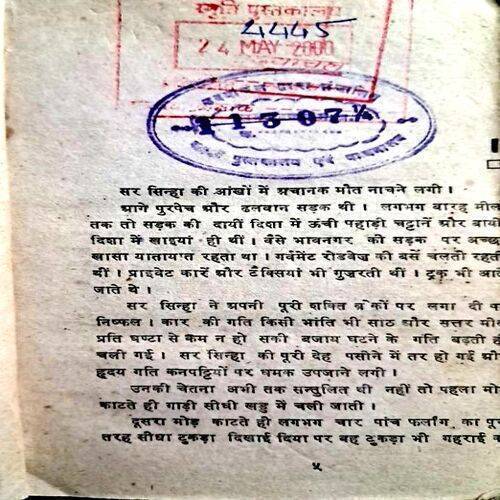 स्मृति पुस्तकालय
4445
24 MAY 2000
21307½
पुस्तकालय एवं वाचनालय
सर सिन्हा की आंखों में अचानक मौत नाचने लगी।
आगे पुरपेच और ढलवान सड़क थी। लगभग बारह मील
तक तो सड़क की दायीं दिशा में ऊंची पहाड़ी चट्टानें और बायीं
दिशा में खाइयां ही थीं। वैसे भावनगर की सड़क पर अच्छा
खासा यातायात रहता था। गर्वमेंट रोडवेज की बसें चलती रहती
थीं। प्राइवेट कारें और टैक्सियां भी गुजरती थीं। ट्रक भी आते
जाते थे।
सर सिन्हा ने अपनी पूरी शक्ति ब्रेकों पर लगा दी
निष्फल। कार की गति किसी भांति भी साठ और सत्तर मील
प्रति घण्टा से कम न हो सकी बजाय घटने के गति बढ़ती ही
चली गई। सर सिन्हा की पूरी देह पसीने में तर हो गई और
हृदय गति कनपट्टियों पर धमक उपजाने लगी।
उनकी चेतना अभी तक सन्तुलित थी नहीं तो पहला मोड़
काटते ही गाड़ी सीधी खड्ड में चली जाती।
दूसरा मोड़ काटते ही लगभग चार पांच फर्लांग का पूरी
तरह सीधा टुकड़ा दिखाई दिया पर वह टुकड़ा भी गहराई
५